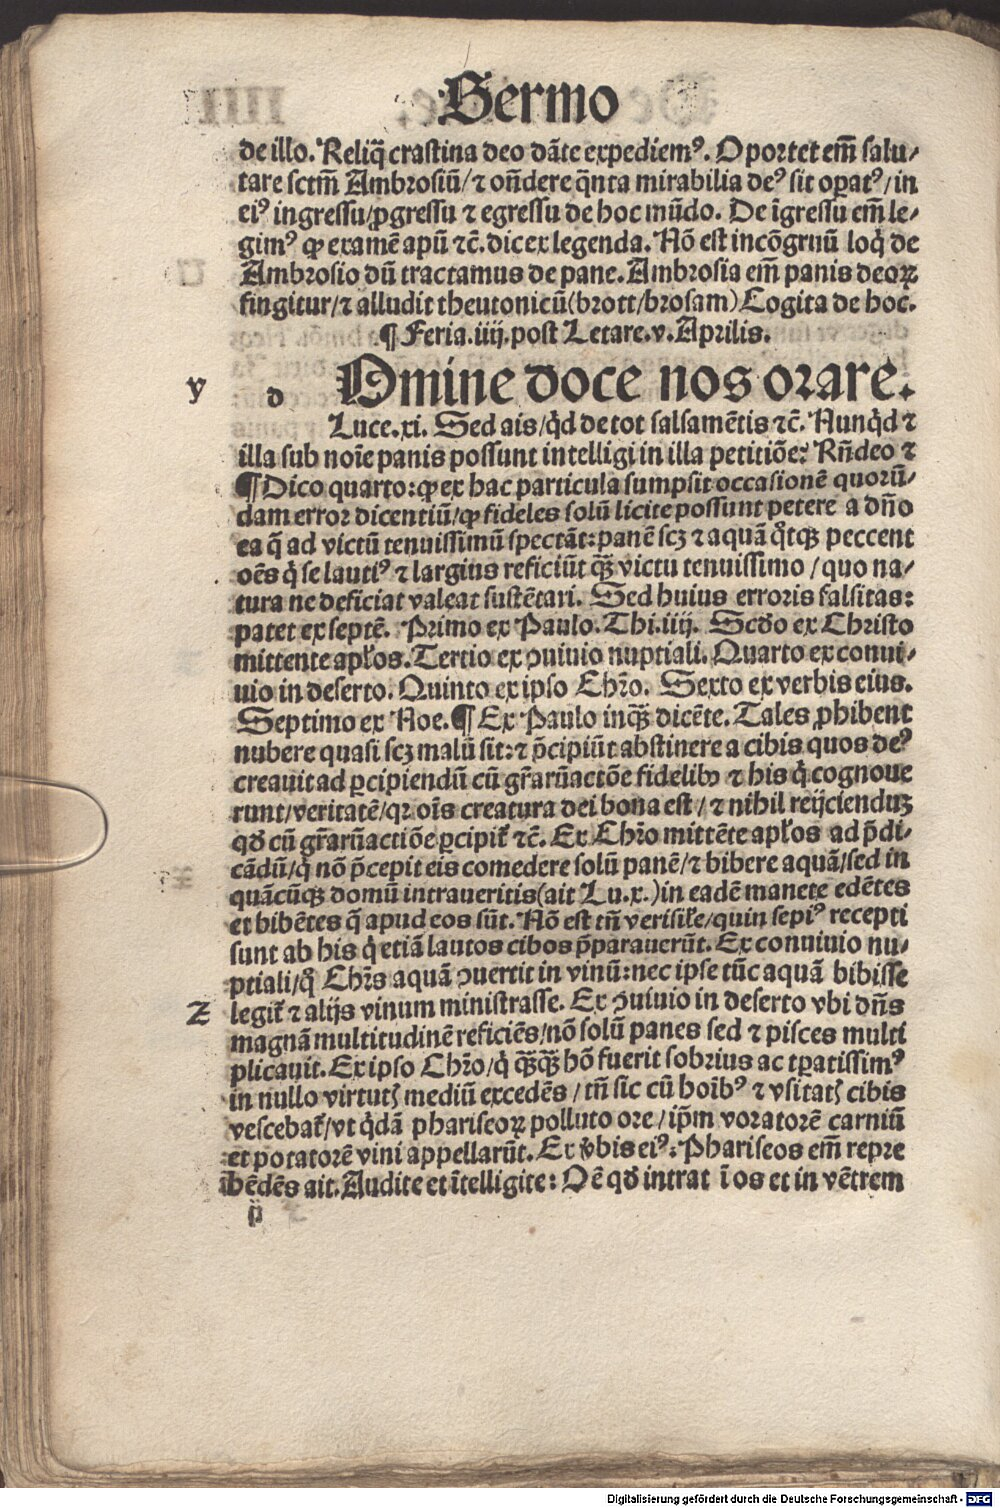 Sermo
de illo. Reliq̃ crastina deo dãte expediemꝰ. Oportet em̃ salu/
tare sctm̃ Ambrosiũ/ ⁊ oñdere q̃nta mirabilia deꝰ sit oꝑatꝰ/ in
eiꝰ ingressu/ ꝓgressu ⁊ egressu de hoc mũdo. De ĩgressu em̃ le/
gimꝰ ꝙ examẽ apũ ⁊c̃. dic ex legenda. Nõ est incõgruũ loq̇ de
Ambrosio dũ tractamus de pane. Ambrosia em̃ panis deoꝝ
fingitur/ ⁊ alludit theutonicũ (brott/ brosam) Cogita de hoc.
¶ Feria.iiij.post Letare.v.Aprilis.
y d Omine doce nos orare.
Luce.xi. Sed ais/ q̇d de tot salsamẽtis ⁊c̃. Nunq̇d ⁊
illa sub noĩe panis possunt intelligi in illa petitiõe? Rñdeo ⁊
¶ Dico quarto: ꝙ ex hac particula sumpsit occasionẽ quorũ/
dam error dicentiũ/ ꝙ fideles solũ licite possunt petere a dño
ea q̃ ad victũ tenuissimũ spectãt: panẽ scꝫ ⁊ aquã q̊tqꝫ peccent
oẽs q̇ se lautiꝰ ⁊ largius reficiũt q̃ꝫ victu tenuissimo/ quo na/
tura ne deficiat valeat sustẽtari. Sed huius erroris falsitas:
patet ex septẽ. Primo ex Paulo. Thi.iiij. Scđo ex Christo
mittente apłos. Tertio ex ꝯuiuio nuptiali. Quarto ex conui/
uio in deserto. Quinto ex ipso Chr̃o. Sexto ex verbis eius.
Septimo ex Noe. ¶ Ex Paulo inq̃ꝫ dicẽte. Tales ꝓhibent
nubere quasi scꝫ malũ sit: ⁊ p̃cipiũt abstinere a cibis quos deꝰ
creauit ad ꝑcipiendũ cũ gr̃arũactõe fidelibꝫ ⁊ his q̇ cognoue
runt/ veritatẽ/ qꝛ oĩs creatura dei bona est/ ⁊ nihil reijciendũ
qđ cũ gr̃arũactiõe ꝑcipit᷑ ⁊c̃. Ex Chr̃o mittẽte apłos ad p̃di/
cãdũ/ q̇ nõ p̃cepit eis comedere solũ panẽ/ ⁊ bibere aquã/ sed in
quãcũqꝫ domũ intraueritis (ait Lu.x.) in eadẽ manete edẽtes
et bibẽtes q̃ apud eos sũt. Nõ est tñ verisiłe/ quin sepiꝰ recepti
sunt ab his q̇ etiã lautos cibos p̃parauerũt. Ex conuiuio nu/
ptiali/ q̊ Chr̃s aquã ꝯuertit in vinũ: nec ipse tũc aquã bibisse
Z legit᷑ ⁊ alijs vinum ministrasse. Ex ꝯuiuio in deserto vbi dñs
magnã multitudinẽ reficiẽs/ nõ solũ panes sed ⁊ pisces multi
plicauit. Ex ipso Chr̃o/ q̇ q̃ꝫq̃ꝫ hõ fuerit sobrius ac tꝑatissimꝰ
in nullo virtutꝭ mediũ excedẽs/ tñ sic cũ hoĩbꝰ ⁊ vsitatꝭ cibis
vescebat᷑/ vt q̇dã phariseoꝝ polluto ore/ ip̃m voratorẽ carniũ
et potatorẽ vini appellarũt. Ex v̄bis eiꝰ: Phariseos em̃ repre
hẽdẽs ait. Audite et ĩtelligite: Oẽ qđ intrat ĩ os et in vẽtrem
Digitalisierung gefördert durch die Deutsche Forschungsgemeinschaft - DFG